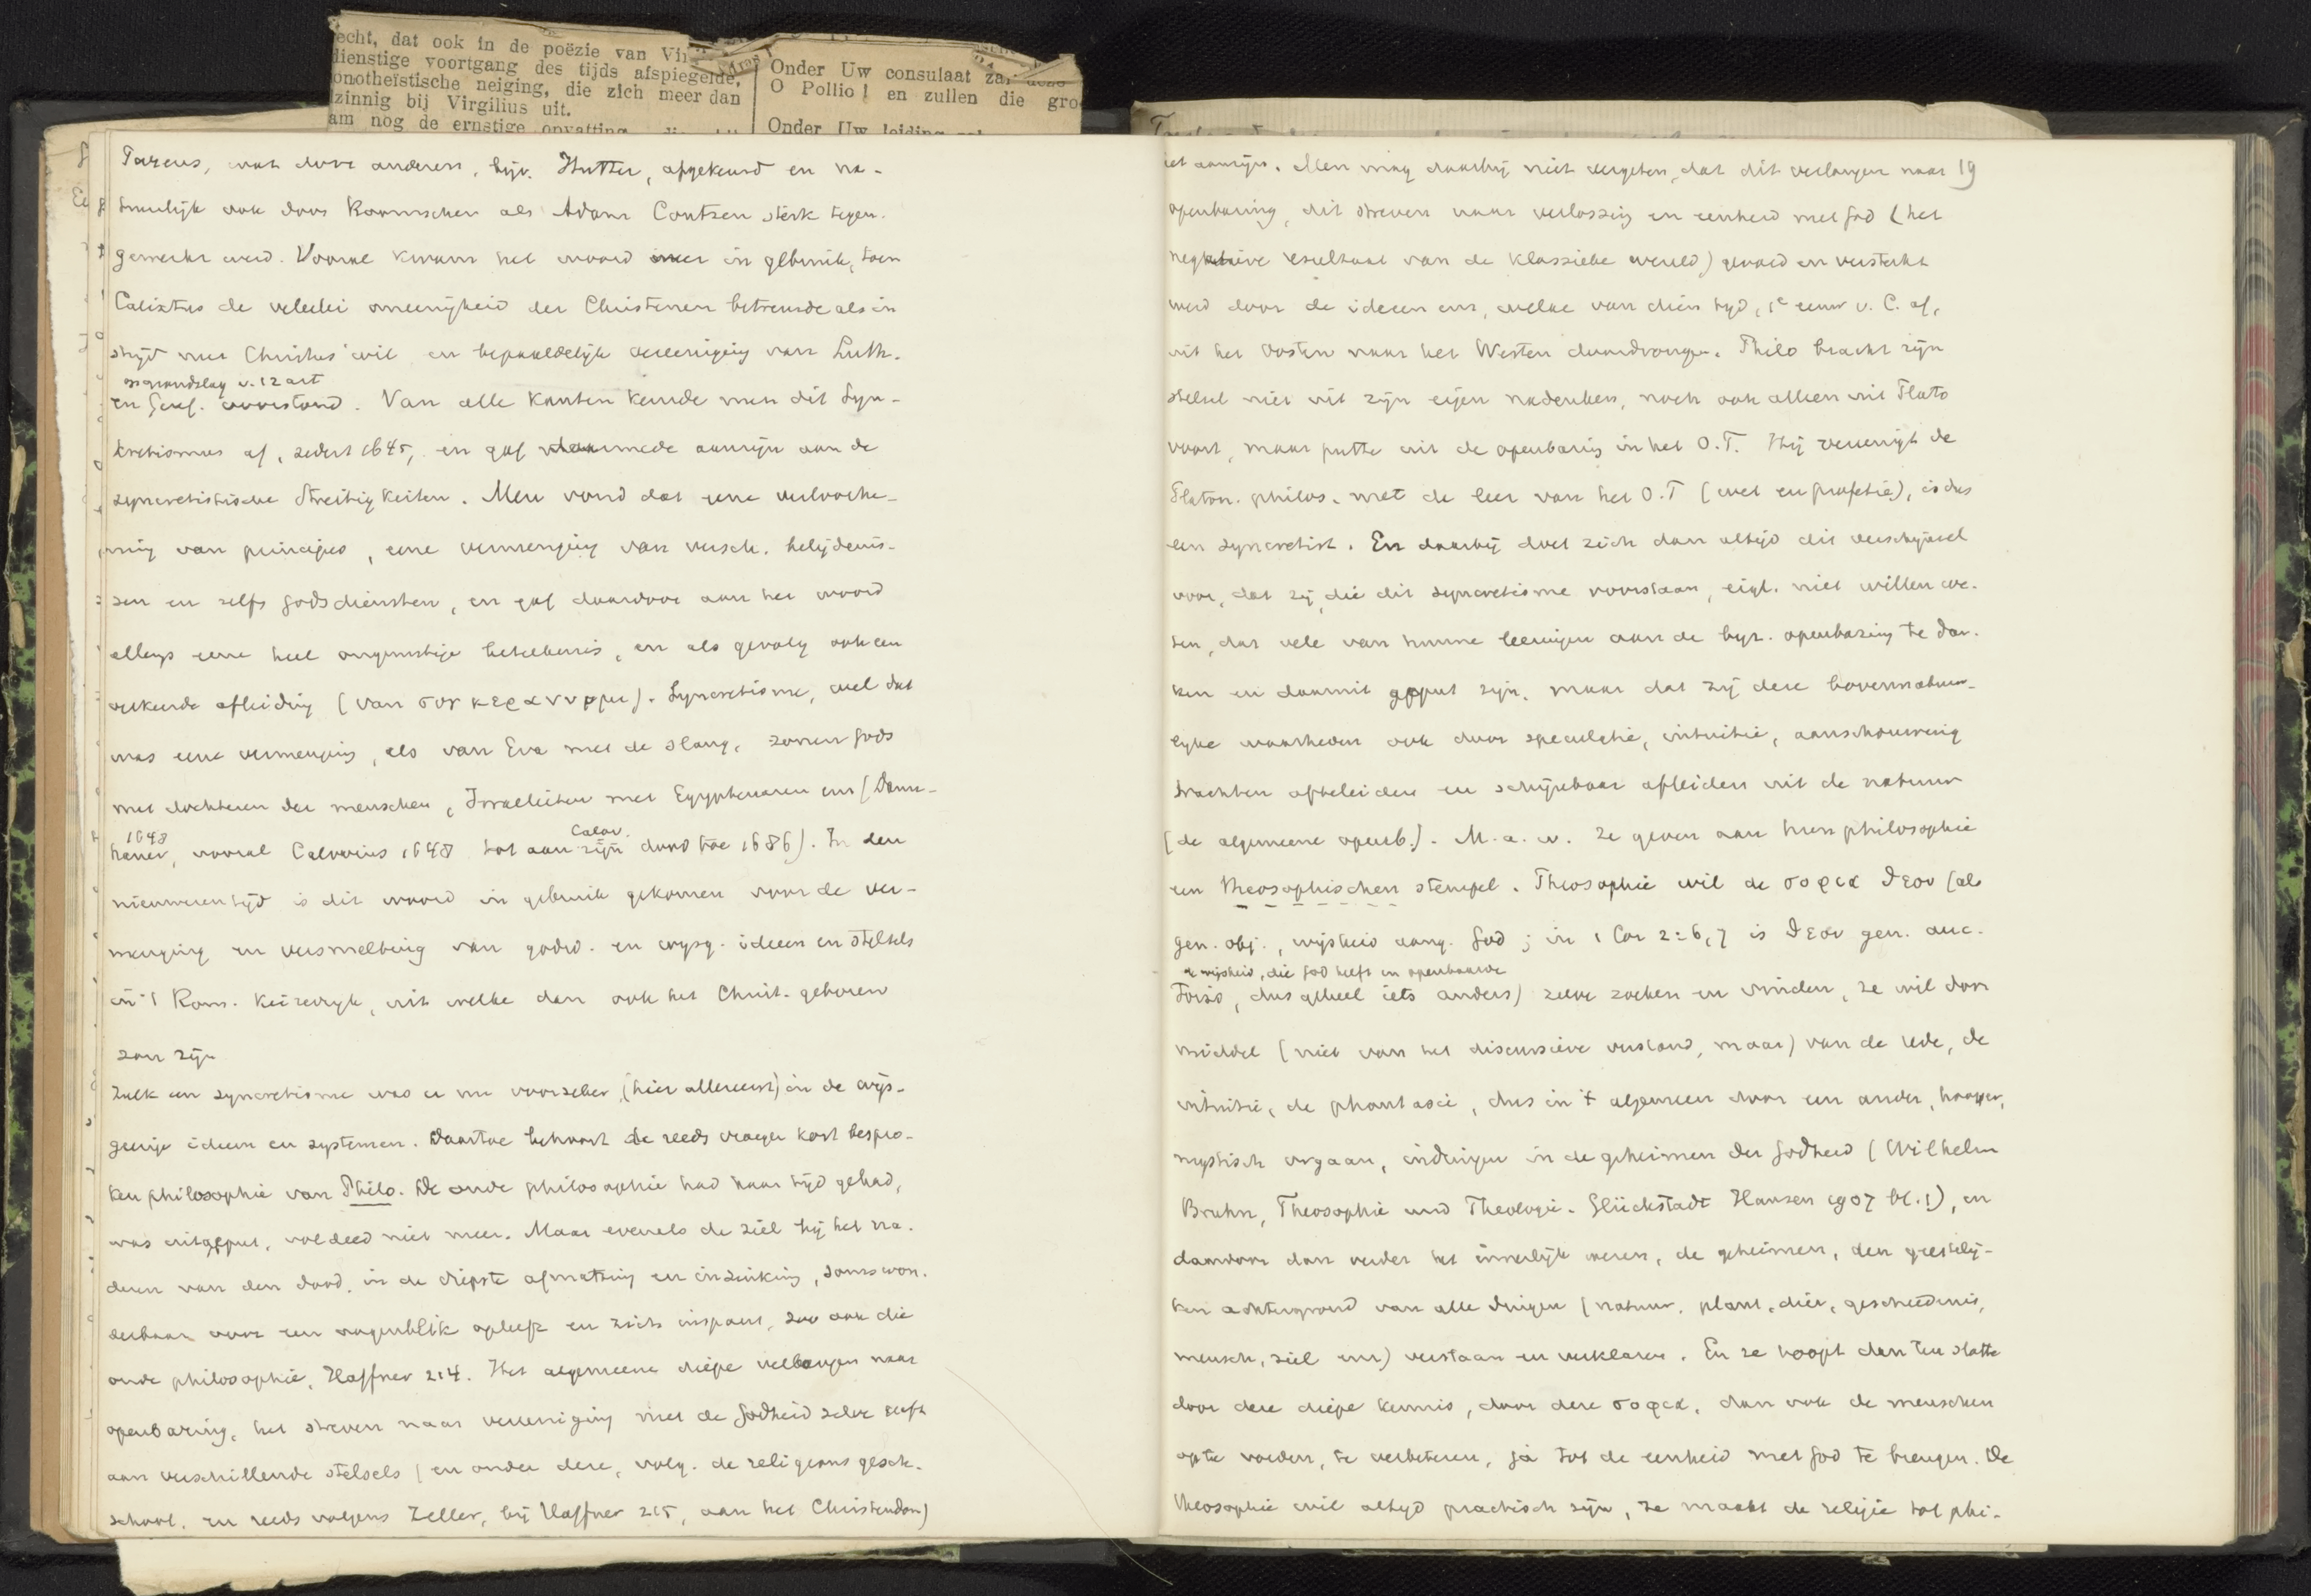 echt, dat ook in de poëzie van Vir
dienstige voortgang des tijds afspiegelde,
onotheïstische neiging, die zich meer dan
zinnig bij Virgilius uit.
am nog de ernstige opvatting
Onder Uw consulaat zal deze
O Pollio! en zullen die gro
Onder Uw leiding
Pareus, wat door anderen, bijv. Hutter, afgekeurd en na-
tuurlijk ook door Roomschen als Adam Contzen sterk tegen.
gewerkt werd. Vooral kwam het woord meer in gebruik, toen
Calixtus de velerlei oneenigheid der Christenen betreurde als in
strijd met Christus' wil en bepaaldelijk vereeniging van Luth.
op grondslag v. 12 art
en Geref. voorstond. Van alle kanten keurde men dit Syn-
kretismus af, sedert 1645, en gaf daarmede aanzijn aan de
syncretistische Streitigkeiten. Men vond dat eene verloche-
ning van principes, eene vermenging van versch. belijdenis-
sen en zelfs godsdiensten, en gaf daardoor aan het woord
allengs eene heel ongunstige beteekenis, en als gevolg ook een
verkeerde afleiding (van συγκεραννυμι). Syncretisme, wel dat
was eene vermenging, als van Eva met de slang, zonen Gods
met dochteren der menschen, Israelieten met Egyptenaren enz (Dann-
1648 Calov.
hauer, vooral Calovius 1648 tot aan zijn dood toe 1686). In den
nieuweren tijd is dit woord in gebruik gekomen voor de ver-
menging en versmelting van godsd. en wijsg. ideeen en stelsels
in 't Rom. keizerrijk, uit welke dan ook het Christ. geboren
zou zijn
Zulk een syncretisme was er nu voorzeker (hier allereerst) in de wijs-
geerige ideeen en systemen. Daartoe behoort de reeds vroeger kort bespro-
ken philosophie van Philo. De oude philosophie had haar tijd gehad,
was uitgeput, voldeed niet meer. Maar evenals de ziel bij het na.
deren van den dood, in de diepste afmatting en inzinking, soms won.
derbaar voor een oogenblik opleeft en zich inspant, zoo ook die
oude philosophie, Haffner 214. Het algemeene diepe verlangen naar
openbaring, het streven naar vereeniging met de Godheid zelve geeft
aan verschillende stelsels (en onder deze, volg. de religions gesch.
school, en reeds volgens Zeller, bij Haffner 215, aan het Christendom)
het aanzijn. Men mag daarbij niet vergeten, dat dit verlangen naar 19
openbaring, dit streven naar verlossing en eenheid met God (het
negatieve resultaat van de klassieke wereld) gevoed en versterkt
werd door de ideeen enz, welke van dien tijd, 1e eeuw v. C. af,
uit het Oosten naar het Westen doordrongen. Philo bracht zijn
stelsel niet uit zijn eigen nadenken, noch ook alleen uit Plato
voort, maar putte uit de openbaring in het O.T. Hij vereenigt de
Platon. philos. met de leer van het O.T (wet en profetie), is dus
een syncretist. En daarbij doet zich dan altijd dit verschijnsel
voor, dat zij, die dit syncretisme voorstaan, eigl. niet willen we-
ten, dat vele van hunne leeringen aan de byz. openbaring te dan-
ken en daaruit geput zijn, maar dat zij deze bovennatuur-
lijke waarheden ook door speculatie, intuitie, aanschouwing
trachten afteleiden en schijnbaar afleiden uit de natuur
(de algemeene openb.). M.a.w. ze geven aan hun philosophie
een theosophischen stempel. Theosophie wil de σοφια θεου (als
gen. obj., wijsheid aang. God; in 1 Cor 2:6,7 is θεου gen. auc-
de wijsheid, die God heeft en openbaarde
toris, dus geheel iets anders) zelve zoeken en vinden, ze wil door
middel (niet van het discursieve verstand, maar) van de rede, de
intuitie, de phantasie, dus in 't algemeen door een ander, hooger,
mystisch orgaan, indringen in de geheimen der Godheid (Wilhelm
Bruhn, Theosophie und Theologie. Glückstadt Hansen 1907 bl. 1), en
daardoor dan verder het innerlijk wezen, de geheimen, den geestelij-
ken achtergrond van alle dingen (natuur, plant, dier, geschiedenis,
mensch, ziel enz) verstaan en verklaren. En ze hoopt dan ten slotte
door deze diepe kennis, door deze σοφια, dan ook de menschen
opte voeden, te verbeteren, ja tot de eenheid met God te brengen. De
theosophie wil altijd practisch zijn, ze maakt de religie tot phi-